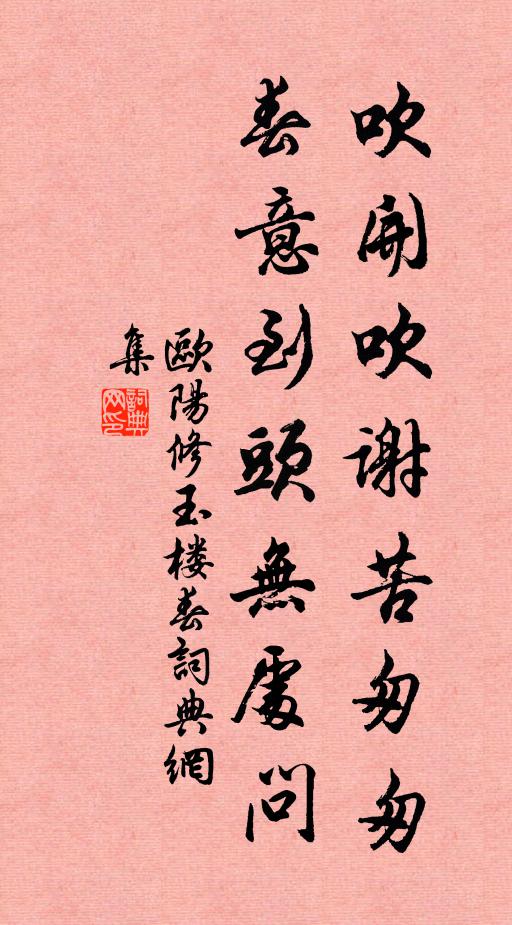 吹開吹謝苦匆匆
春意到頭無處問
歐陽修玉楼春詞典網
集
詞典
网印